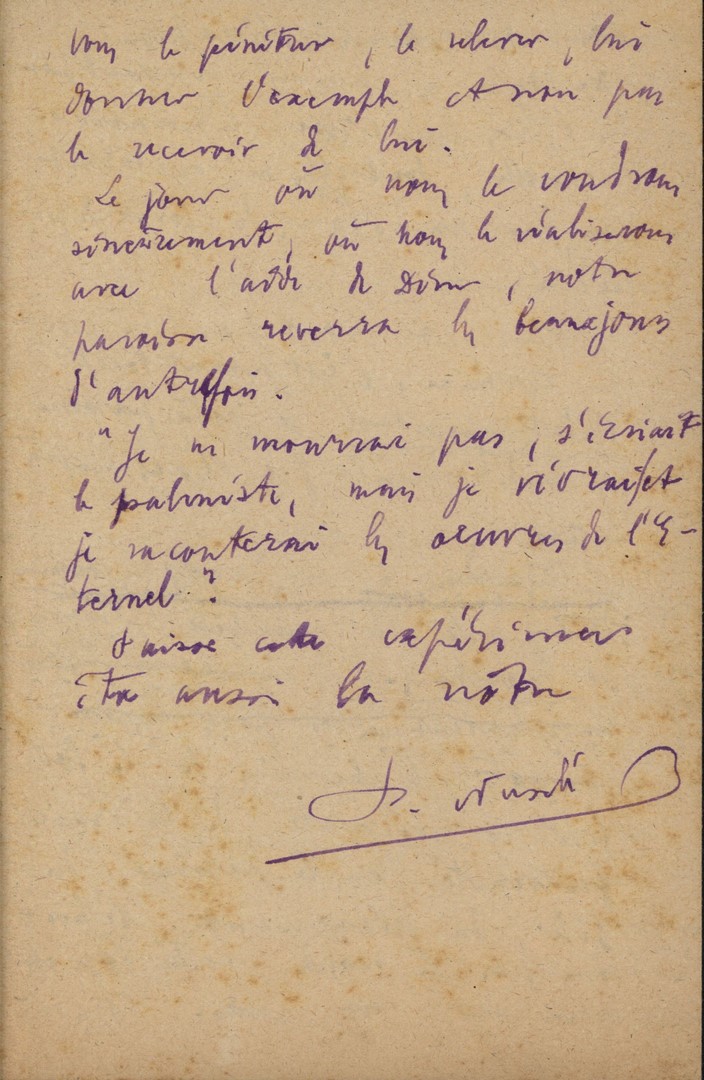 le pénétrer, le relever, lui
donner l'exemple et non pas
le recevoir de lui.
Le jour où nous le voudrons
sincèrement, où nous le réaliserons
avec l'aide de Dieu, notre
paroisse reverra les beaux jours
d'autrefois.
"Je ne mourrai pas, s'écriait
le psalmiste, mais je vivrai et
je raconterai les oeuvres de l'E-
ternel".
Puisse cette expérience
être aussi la nôtre